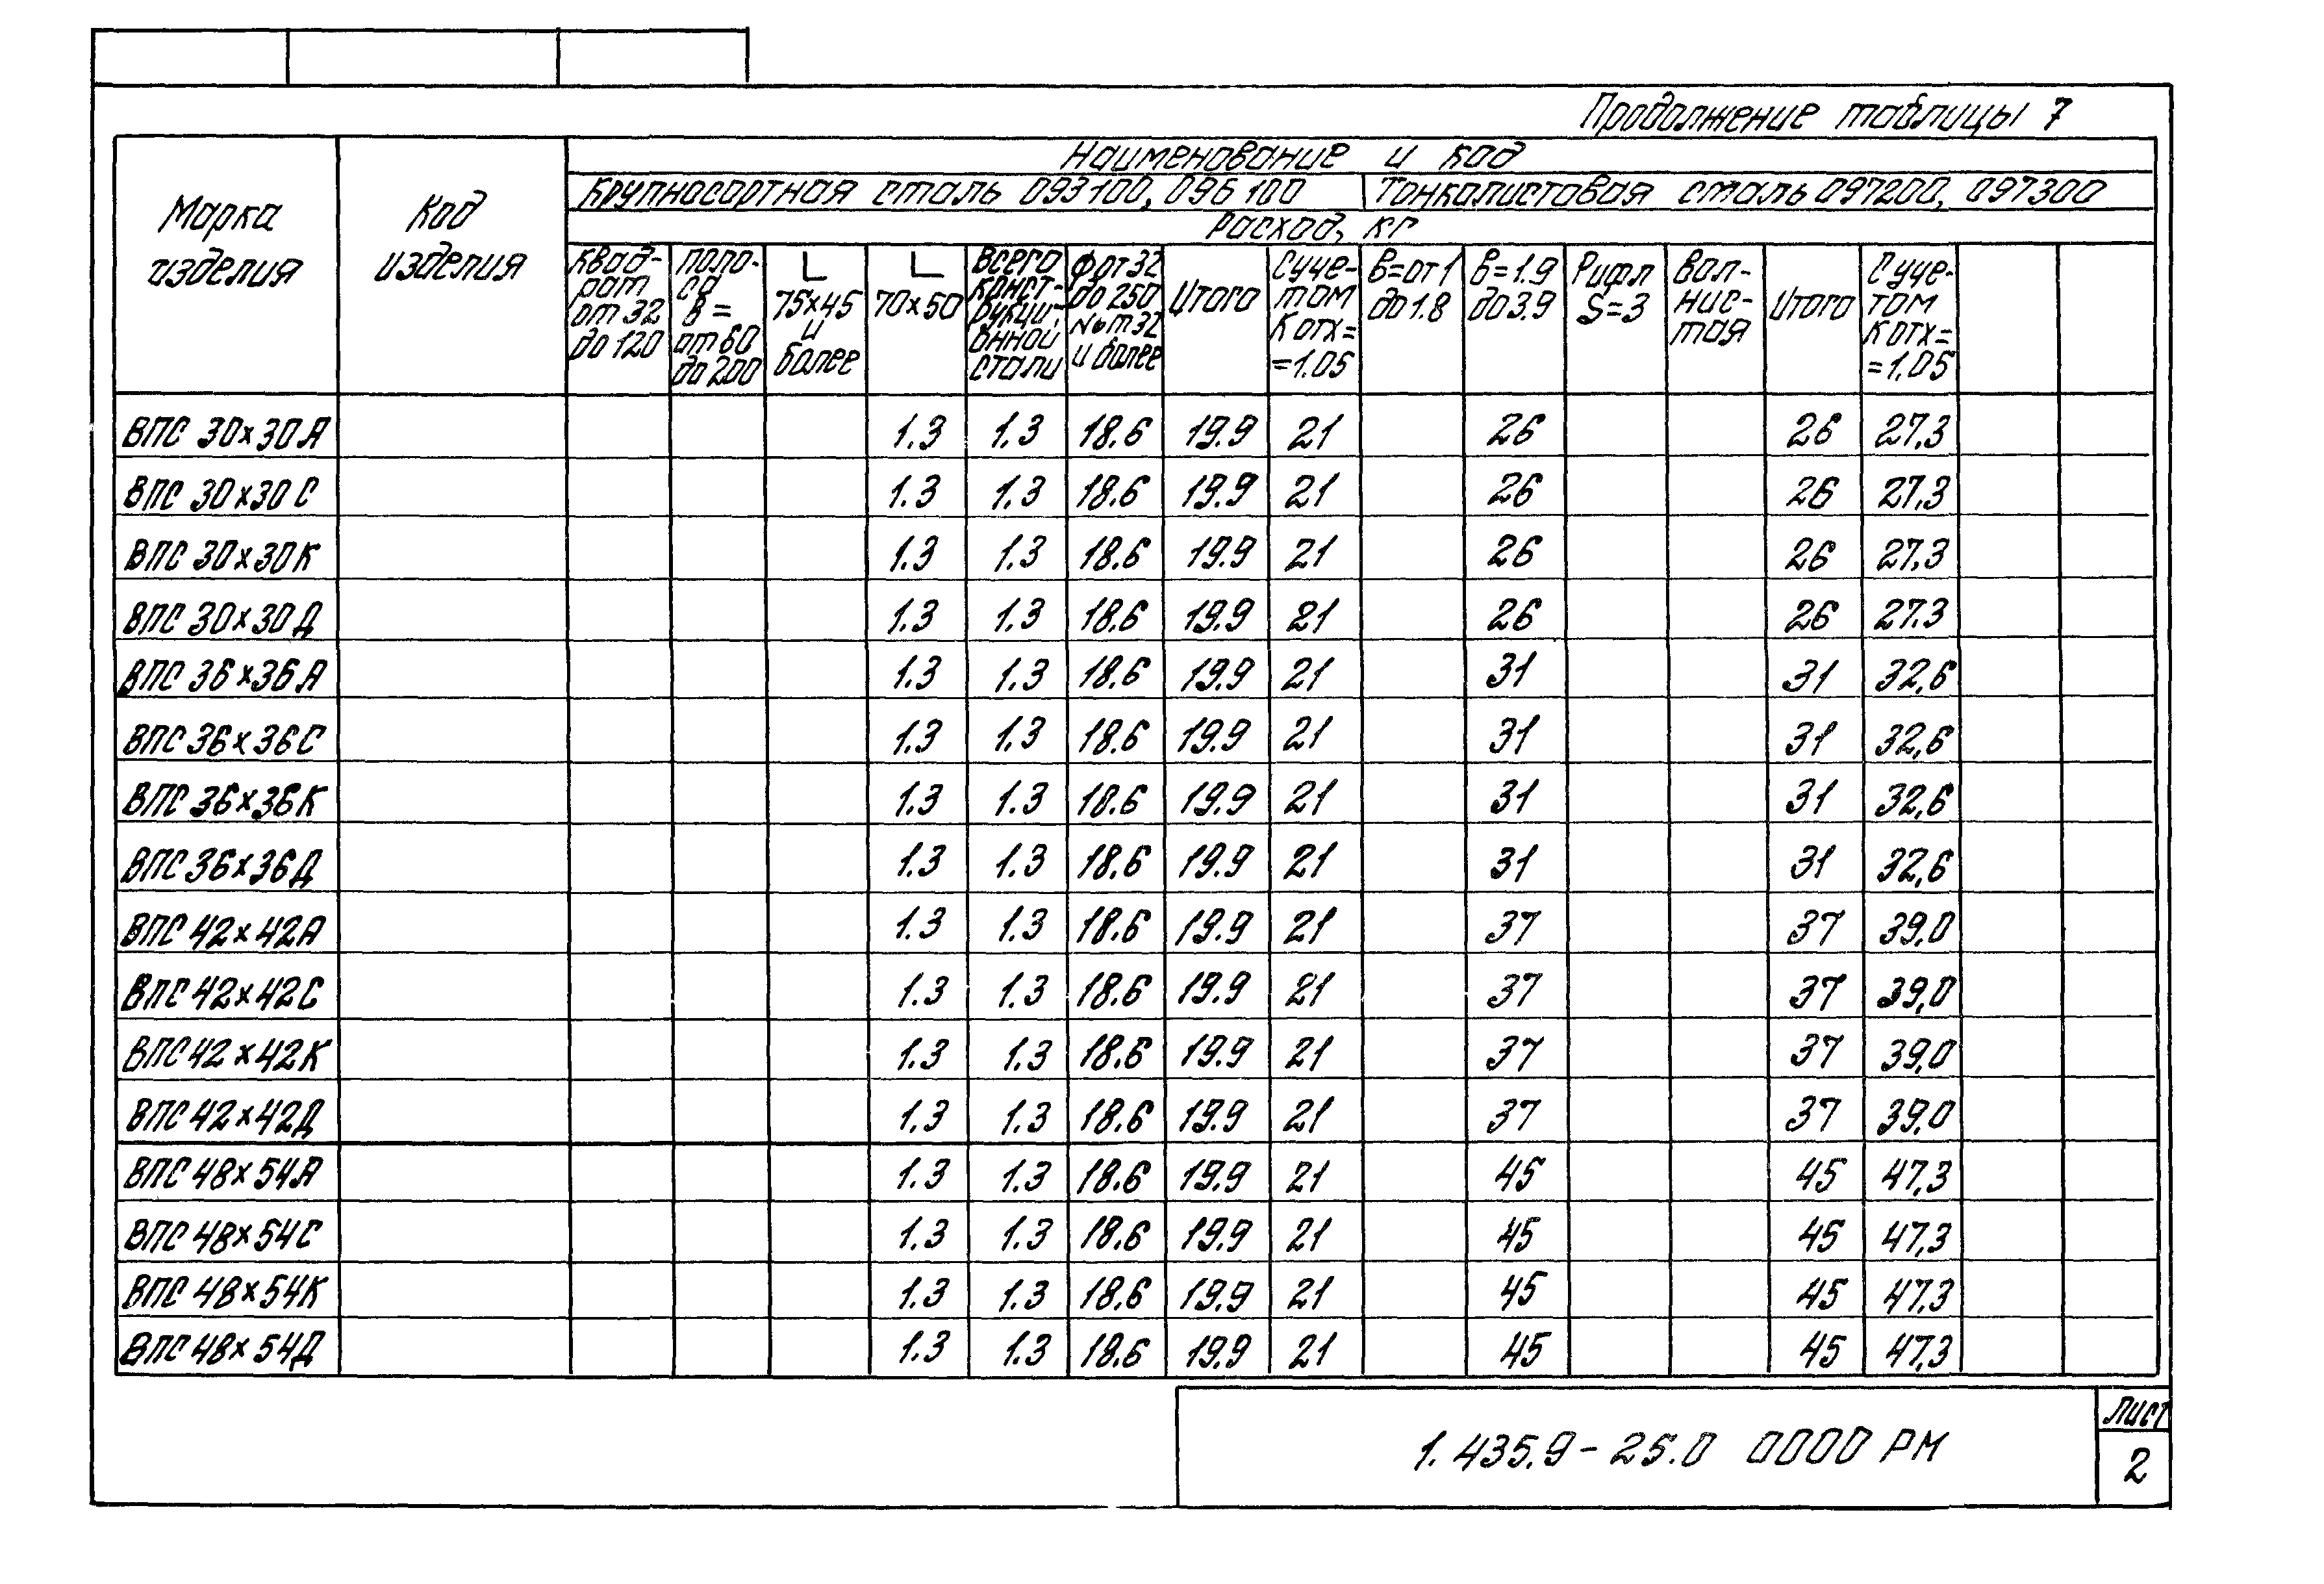 Продолжение таблицы 7
Наименование и код
Марка изделия
Код изделия
Крупносортная сталь 093100, 096100
Тонколистовая сталь 097200, 097300
Расход, кг
Квад-
рат
от 32
до 120
поло-
са
в =
от 60
до 200
75×45
и
более
70×50
Всего
конст-
рукци-
онной
стали
Ф от 32
до 250
№ от 32
и более
Итого
С уче-
том
К отх=
=1.05
в=от 1
до 1.8
в=1.9
до 3.9
Рифл
S=3
Вол-
нис-
тая
Итого
С уче-
том
К отх=
=1.05
ВПС 30×30А 1.3 1.3 18.6 19.9 21 26 26 27,3
ВПС 30×30С 1.3 1.3 18.6 19.9 21 26 26 27,3
ВПС 30×30К 1.3 1.3 18.6 19.9 21 26 26 27,3
ВПС 30×30Д 1.3 1.3 18.6 19.9 21 26 26 27.3
ВПС 36×36А 1.3 1.3 18.6 19.9 21 31 31 32,6
ВПС 36×36С 1.3 1.3 18.6 19.9 21 31 31 32,6
ВПС 36×36К 1.3 1.3 18.6 19.9 21 31 31 32,6
ВПС 36×36Д 1.3 1.3 18.6 19.9 21 31 31 32,6
ВПС 42×42А 1.3 1.3 18.6 19.9 21 37 37 39,0
ВПС 42×42С 1.3 1.3 18.6 19.9 21 37 37 39,0
ВПС 42×42К 1.3 1.3 18.6 19.9 21 37 37 39,0
ВПС 42×42Д 1.3 1.3 18.6 19.9 21 37 37 39,0
ВПС 48×54А 1.3 1.3 18.6 19.9 21 45 45 47,3
ВПС 48×54С 1.3 1.3 18.6 19.9 21 45 45 47,3
ВПС 48×54К 1.3 1.3 18.6 19.9 21 45 45 47,3
ВПС 48×54Д 1.3 1.3 18.6 19.9 21 45 45 47,3
1.435.9-25.0 0000 РМ
Лист
2